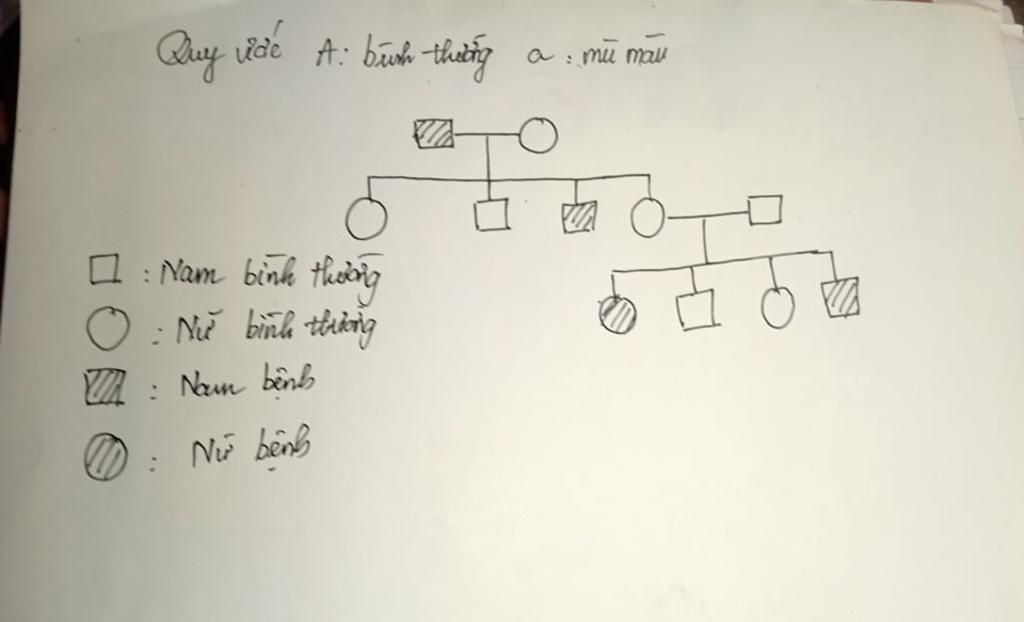 Quy ước A: bình thường a: mù màu
: Nam bình thường
: Nữ bình thường
: Nam bệnh
: Nữ bệnh